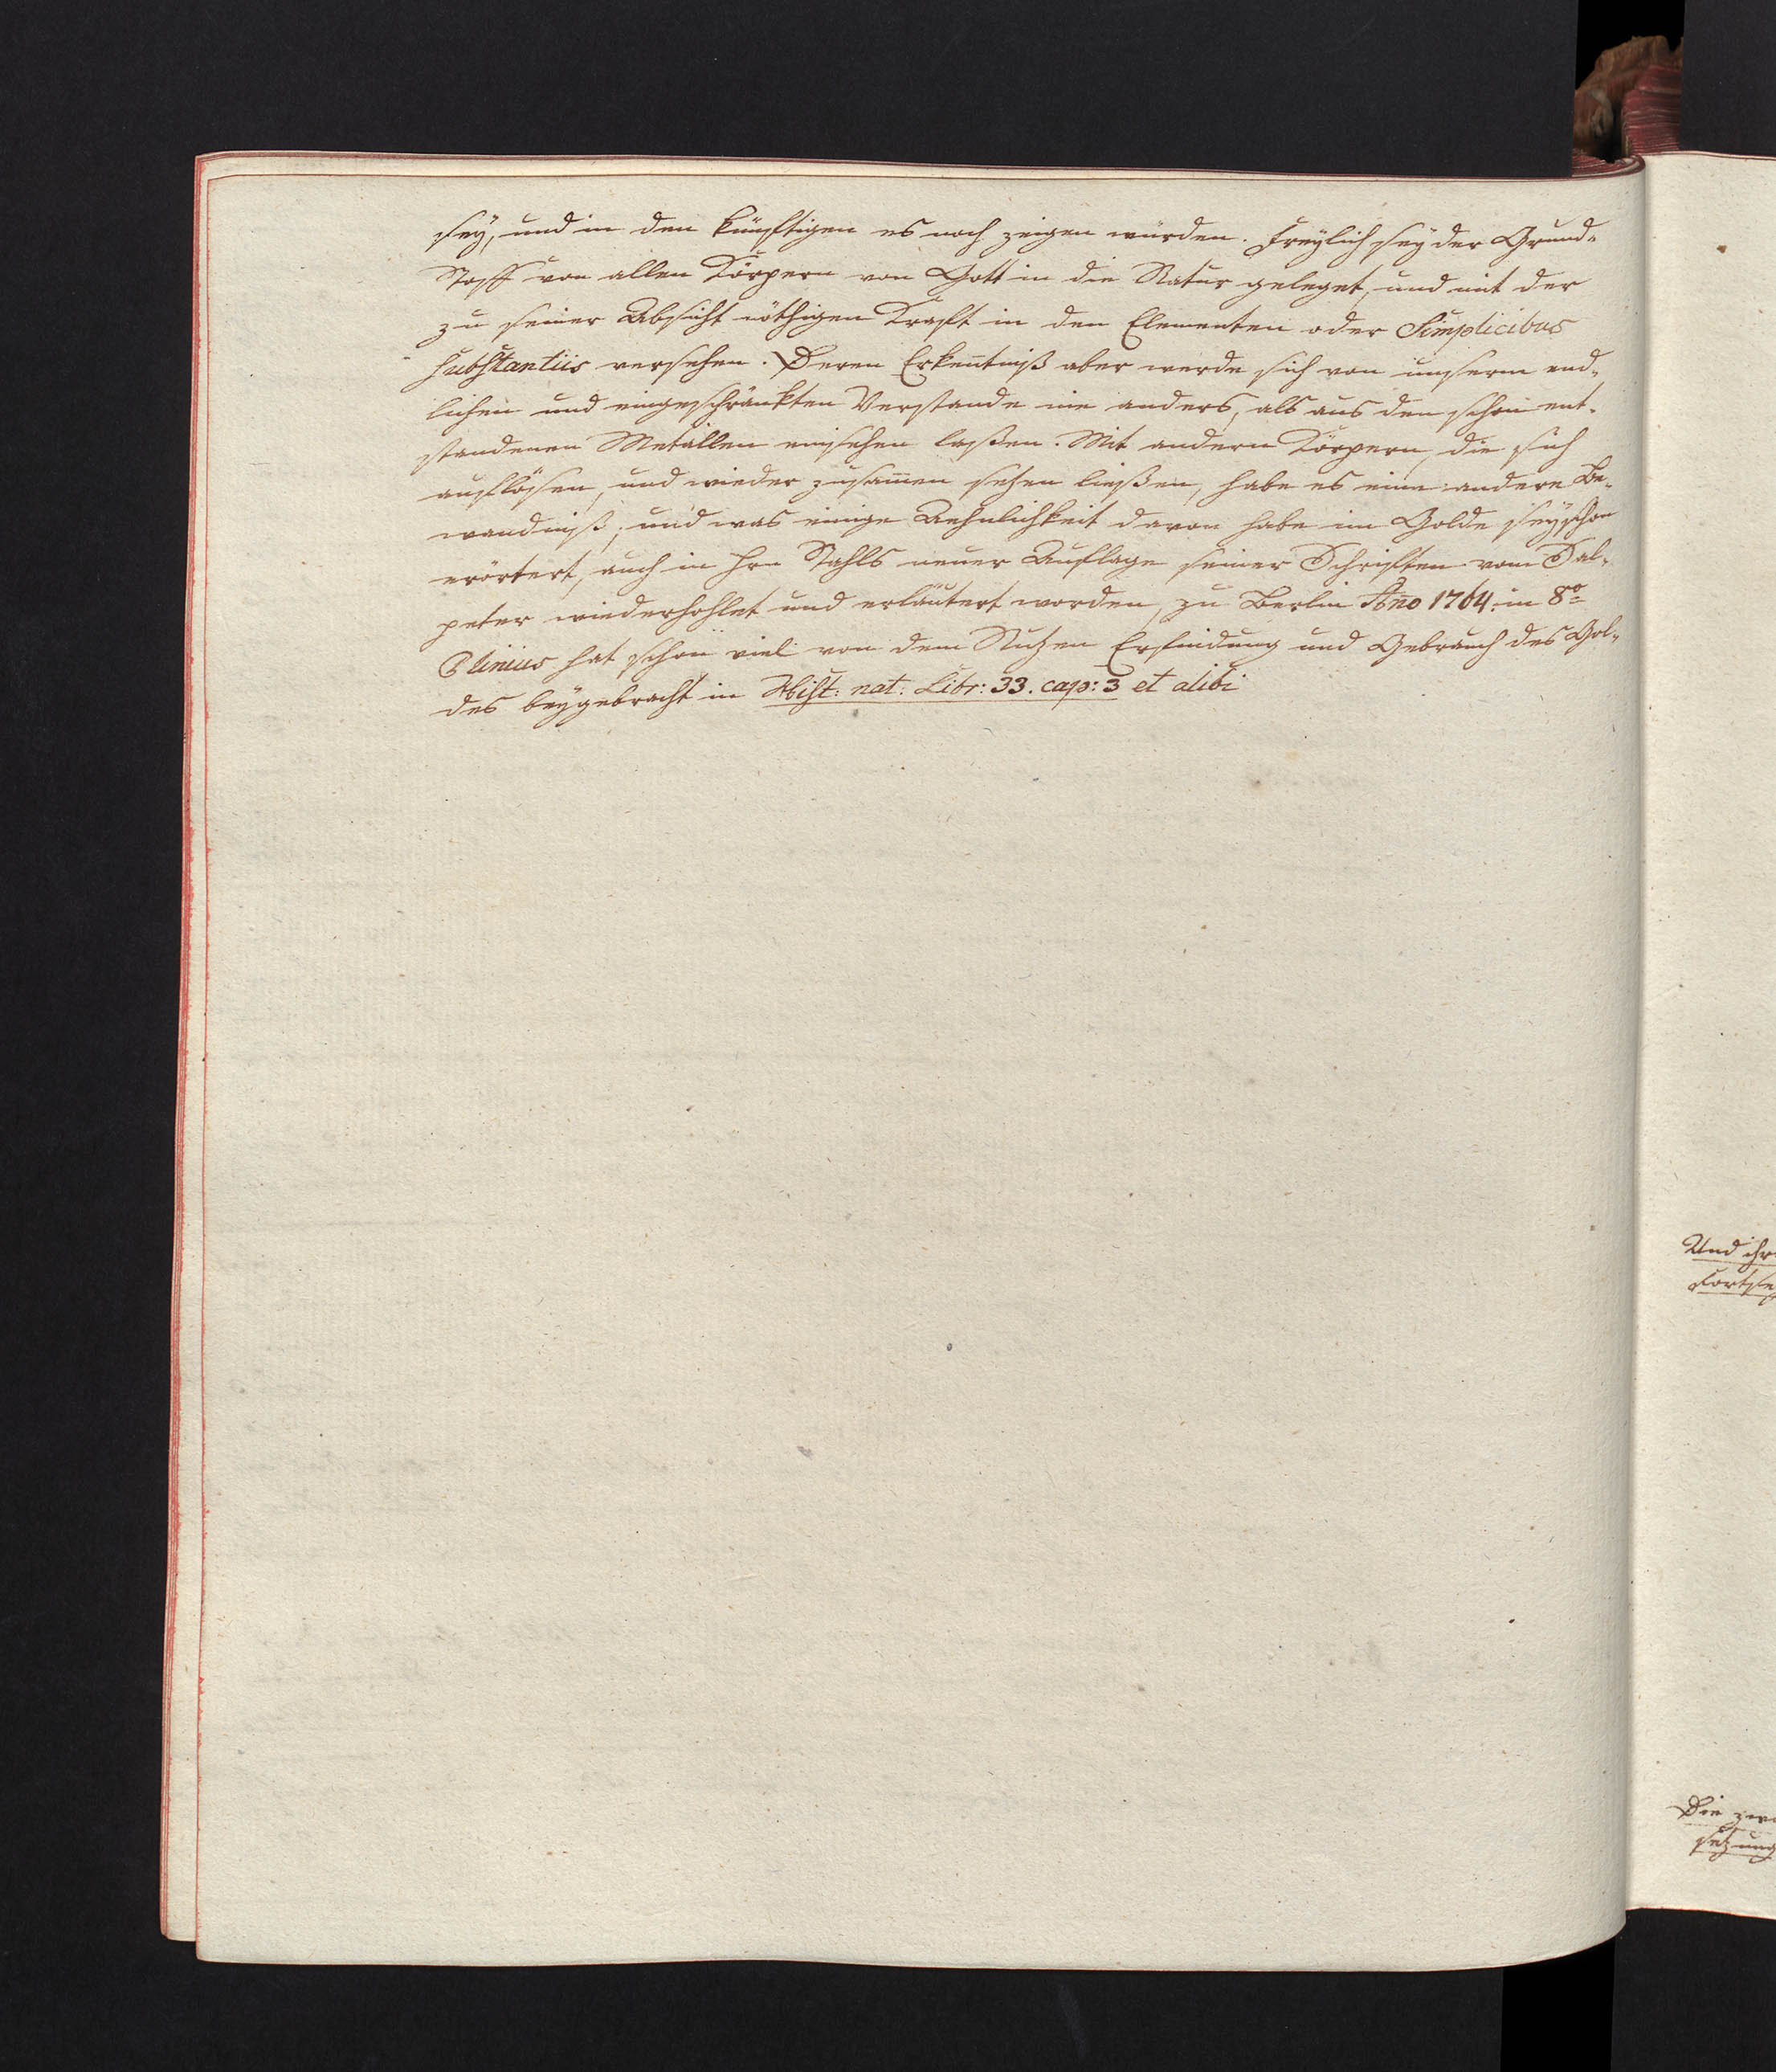 sey, und in den künftigen es noch zeigen würden. Freylich sey der Grund-
Stoff von allen Körpern von Gott in die Natur geleget, und mit der
zu seiner Absicht nöthigen Kraft in den Elementen oder Simplicibus
substantiis versehen. Deren Erkentniß aber werde sich von unserm end-
lichen und eingeschränkten Verstande nie anders, als aus den schon ent-
standenen Metallen einsehen laßen. Mit andern Körpern, die sich
auflösen, und wieder zusamen sezen ließen, habe es eine andere Be-
wandniß, und was einige Aehnlichkeit davon habe im Golde sey schon
erörtert, auch in Hrn Stahls neuer Auflage seiner Schriften vom Sal-
peter wiederhohlet und erläutert worden, zu Berlin Ano 1764. in 8º
Plinius hat schon viel von dem Nuzen Erfindung und Gebrauch des Gol-
des beygebracht in Hist: nat: Libr: 33. cap: 3 et alibi
Und ihr
Fortse
Die zw
setzung